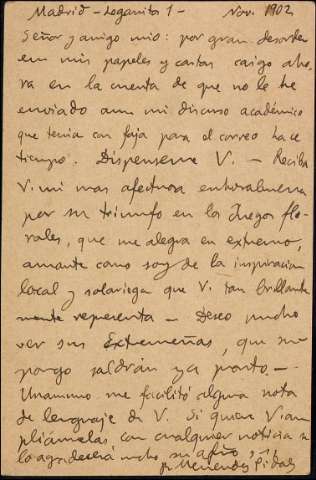 Madrid - Leganitos 1 - Nov. 1902
Señor y amigo mio: por gran desorden
en mis papeles y cartas caigo aho,
ra en la cuenta de que no le he
enviado aun mi discurso académico
que tenia con faja para el correo hace
tiempo. Dispenseme V. - Reciba
V. mi mas afectuosa enhorabuena
por su triunfo en los Juegos flo-
rales, que me alegra en extremo,
amante como soy de la inspiracion
local y solariega que V. tan brillante
mente representa - Deseo mucho
ver sus Extremeñas, que su-
pongo saldrán ya pronto -
Unamuno me facilitó alguna nota
de lenguaje de V. Si quiere V. am
pliámelas con cualquier noticia se
lo agradecerá mucho su afmo.
R. Menéndez Pidal